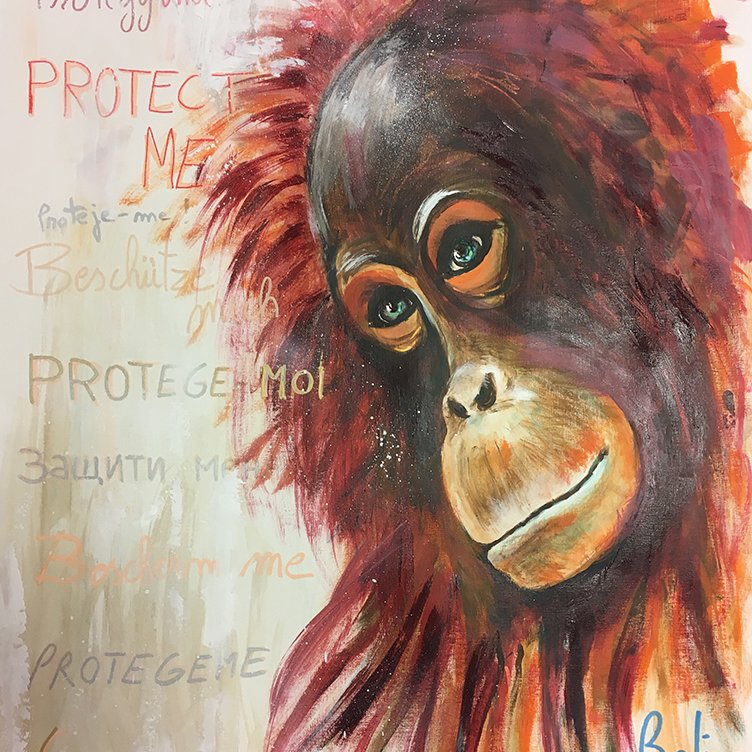 PROTECT
ME
Proteje-me!
Beschütze
mich
PROTEGE-MOI
Защити
me
PROTEGEME